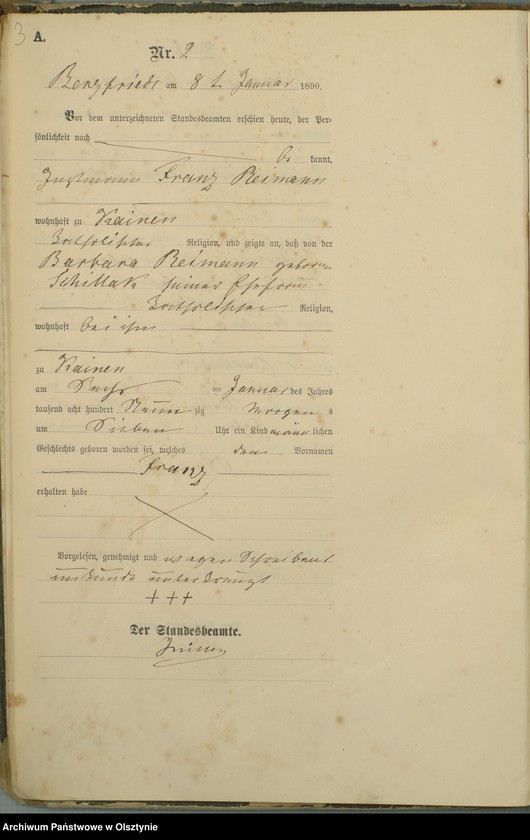 3
A.
Nr. 2
Bergfriede am 8 t. Januar 1890.
Vor dem unterzeichneten Standesbeamten erschien heute, der Per-
sönlichkeit nach
be kannt,
Franz Reimann
wohnhaft zu Kainen
katholischer Religion, und zeigte an, daß von der
Barbara Reimann geborne
seiner Ehefrau
katholischer Religion,
wohnhaft bei ihm
zu Kainen
am Sechs ten Januar des Jahres
tausend acht hundert Neun zig Morgen s
um Sieben Uhr ein Kind männ lichen
Geschlechts geboren worden sei, welches den Vornamen
Franz
erhalten habe
Vorgelesen, genehmigt und wegen Schreibens
unkunde unterkreuzt
+++
Der Standesbeamte.
Archiwum Państwowe w Olsztynie